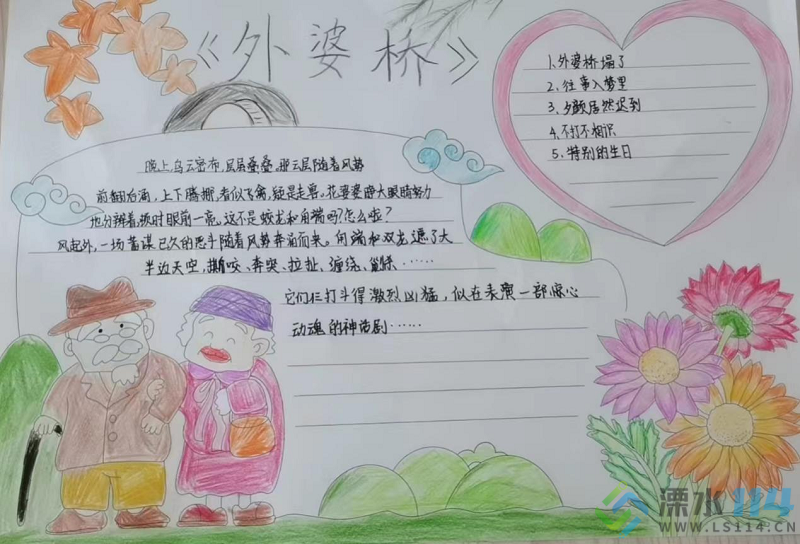 《外婆桥》
1.外婆桥塌了
2.往事入梦里
3.夕颜居然迟到
4.不打不相识
5.特别的生日
晚上,乌云密布,层层叠叠。那云层随着风势
前翻后涌,上下腾挪,看似飞禽,疑是走兽。花婆婆睁大眼睛努力
地分辨着,顿时眼前一亮。这不是蛟龙和角端吗?怎么啦?
风起外,一场蓄谋已久的恶斗随着风势奔涌而来。角端和双龙遮了大
半边天空,撕咬、奔突、拉扯、缠绕、
它们仨打斗得激烈凶猛,似在表演一部惊心
动魂的神话剧……
溧水114
WWW.LS114.CN